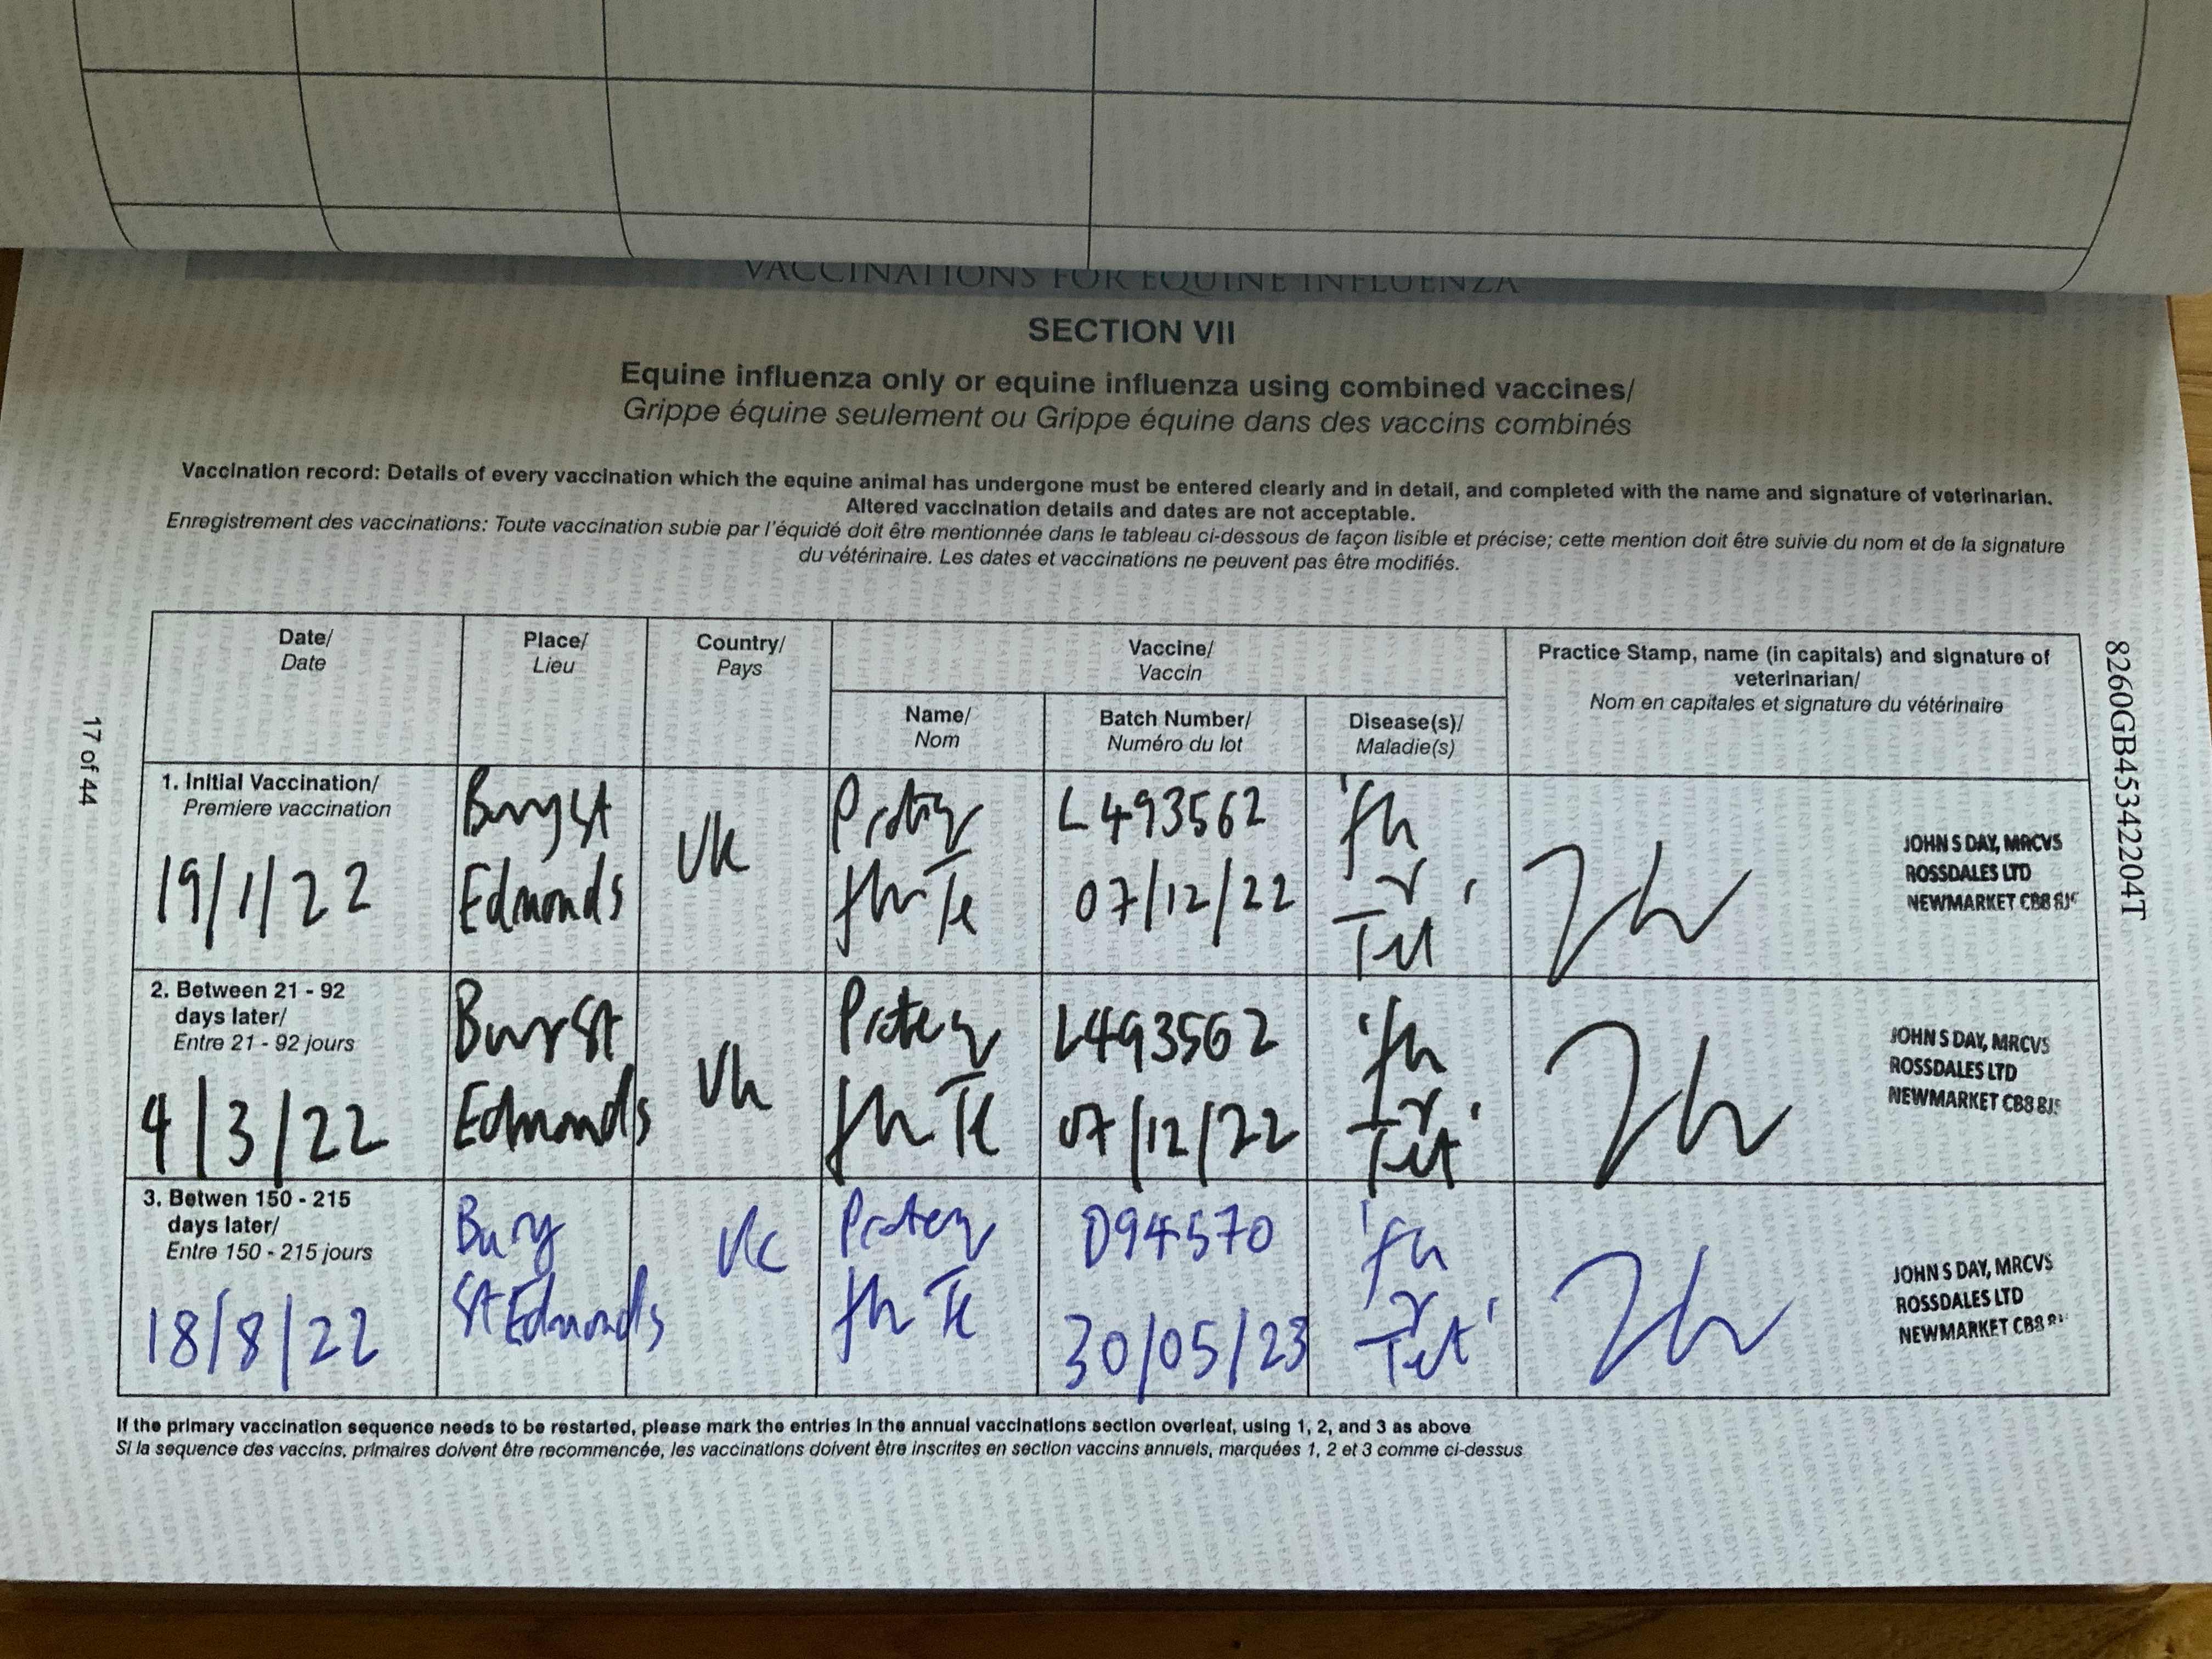 VACCINATIONS FOR EQUINE INFLUENZA
SECTION VII
Equine influenza only or equine influenza using combined vaccines/
Grippe équine seulement ou Grippe équine dans des vaccins combinés
Vaccination record: Details of every vaccination which the equine animal has undergone must be entered clearly and in detail, and completed with the name and signature of veterinarian.
Altered vaccination details and dates are not acceptable.
Enregistrement des vaccinations: Toute vaccination subie par l'équidé doit être mentionnée dans le tableau ci-dessous de façon lisible et précise; cette mention doit être suivie du nom et de la signature
du vétérinaire. Les dates et vaccinations ne peuvent pas être modifiés.
Date/
Date
Place/
Lieu
Country/
Pays
Vaccine/
Vaccin
Practice Stamp, name (in capitals) and signature of
veterinarian/
Nom en capitales et signature du vétérinaire
Name/
Nom
Batch Number/
Numéro du lot
Disease(s)/
Maladie(s)
1. Initial Vaccination/
Premiere vaccination
19/1/22
Bury St
Edmonds
Uk
Proteq
flu Te
L493562
07/12/22
flu
Tet
JOHN S DAY, MRCVS
ROSSDALES LTD
NEWMARKET CB8
2. Between 21 - 92
days later/
Entre 21 - 92 jours
4/3/22
Bury St
Edmonds
Uk
Proteq
flu Te
L493562
07/12/22
flu
Tet
JOHN S DAY, MRCVS
ROSSDALES LTD
NEWMARKET CB8
3. Betwen 150 - 215
days later/
Entre 150 - 215 jours
18/8/22
Bury
St Edmonds
Uk
Proteq
flu Te
D94570
30/05/23
flu
Tet
JOHN S DAY, MRCVS
ROSSDALES LTD
NEWMARKET CB8
If the primary vaccination sequence needs to be restarted, please mark the entries in the annual vaccinations section overleaf, using 1, 2, and 3 as above
Si la sequence des vaccins, primaires doivent être recommencée, les vaccinations doivent être inscrites en section vaccins annuels, marquées 1, 2 et 3 comme ci-dessus
17 of 44
8260GB45342204T